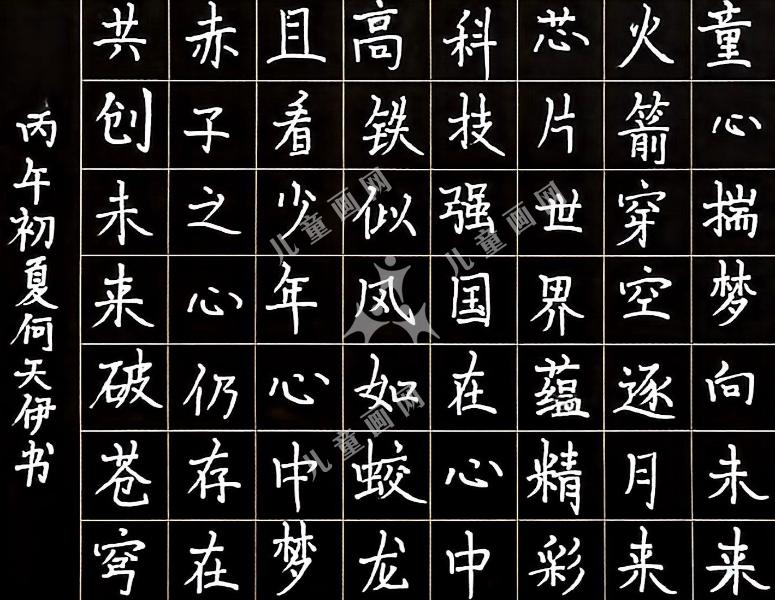 童心揣梦向未来
火箭穿空逐月来
芯片世界蕴精彩
科技强国在心中
高铁似风如蛟龙
且看少年心中梦
赤子之心仍存在
共创未来破苍穹
丙午初夏何天伊书
儿童画网
儿童画网
儿童画网